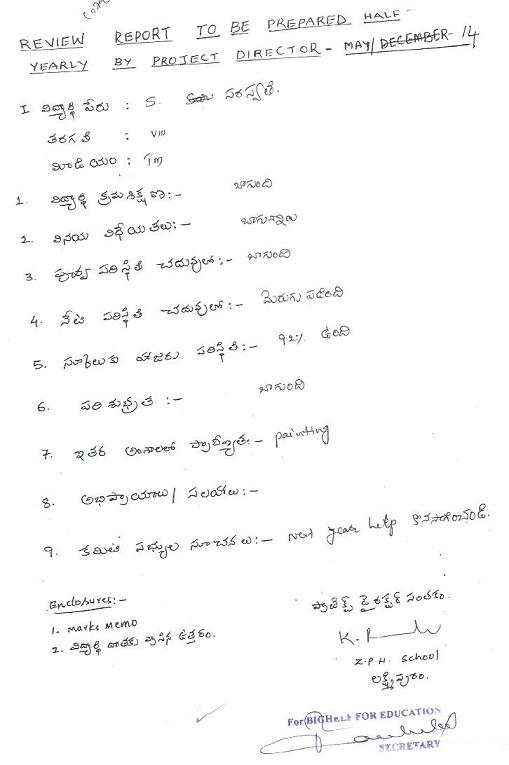 REVIEW REPORT TO BE PREPARED HALF-
YEARLY BY PROJECT DIRECTOR - MAY/DECEMBER- 14
I విద్యార్థి పేరు : S. సరస్వతి.
తరగతి : VIII
మీడియం : TM
1. విద్యార్థి క్రమశిక్షణ:- బాగుంది
2. వినయ విధేయతలు:- బాగున్నాయి
3. పూర్వ పరిస్థితి చదువులో:- బాగుంది
4. నేటి పరిస్థితి చదువులో:- మెరుగు పడింది
5. స్కూలుకు హాజరు పరిస్థితి:- 92% ఉంది
6. పరిశుభ్రత :- బాగుంది
7. ఇతర అంశాలలో ప్రావీణ్యత:- painting
8. అభిప్రాయాలు / సలహాలు:-
9. కమిటీ సభ్యుల సూచనలు:- Next year help కొనసాగించండి.
Enclosures:-
1. Marks Memo
2. విద్యార్థి దాతకు వ్రాసిన ఉత్తరం.
ప్రాజెక్ట్ డైరెక్టర్ సంతకం.
Z.P.H. School
లక్ష్మీపురం.
For BIGHELP FOR EDUCATION
SECRETARY